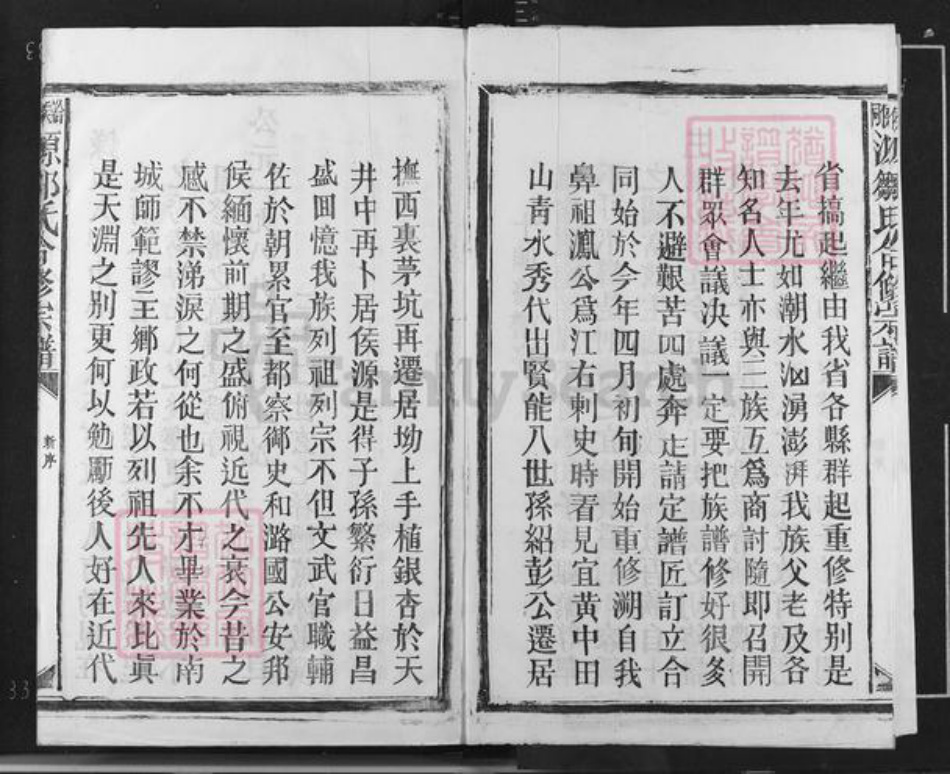 省搞起繼由我省各縣群起重修特別是
去年尤如潮水汹湧澎湃我族父老及各
知名人士亦與三族互爲商討隨即召開
群眾會議决議一定要把族譜修好很多
人不避艱苦四處奔走請定譜匠訂立合
同始於今年四月初旬開始重修溯自我
鼻祖鳳公爲江右刺史時看見宜黃中田
山青水秀代出賢能八世孫紹彭公遷居
撫西裏茅坑再遷居坳上手植銀杏於天
井中再卜居侯源是得子孫繁衍日益昌
盛囬憶我族列祖列宗不但文武官職輔
佐於朝累官至都察御史和潞國公安邦
侯緬懷前期之盛俯視近代之衰今昔之
感不禁涕淚之何從也余不才畢業於南
城師範謬主鄉政若以列祖先人來比眞
是天淵之别更何以勉勵後人好在近代
源鄒氏合修宗譜
新序
FamilySearch
33